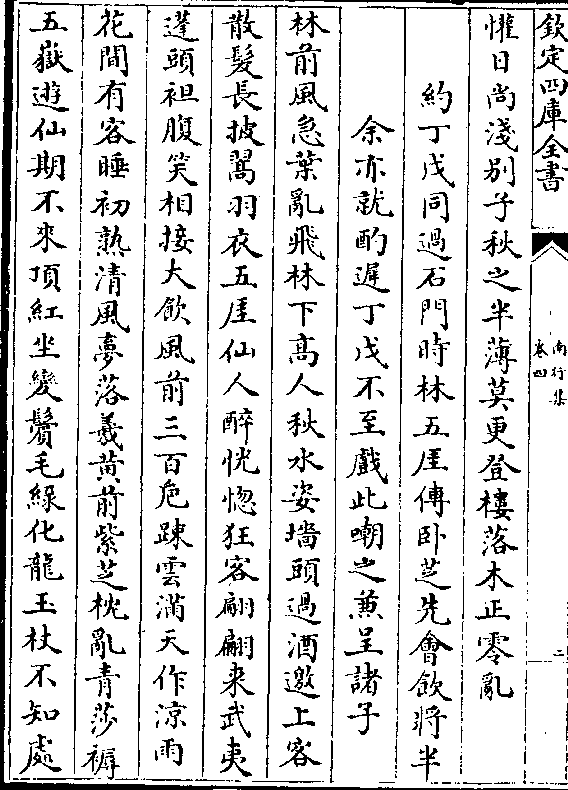 欽定四庫全書
南行集
卷四
二
懽日尚淺别子秋之半薄莫更登樓落木正零亂
約丁戊同過石門時林五厓傅卧芝先會飲將半
余亦就酌遲丁戊不至戲此嘲之兼呈諸子
林前風急葉亂飛林下髙人秋水姿墻頭過酒邀上客
散髮長披鶡羽衣五厓仙人醉恍惚狂客翩翩来武夷
蓬頭袒腹笑相接大飲風前三百巵踈雲滿天作凉雨
花間有客睡初熟清風夢落羲黄前紫芝枕亂青莎褥
五嶽遊仙期不来頂紅坐變鬢毛緑化龍玉杖不知處